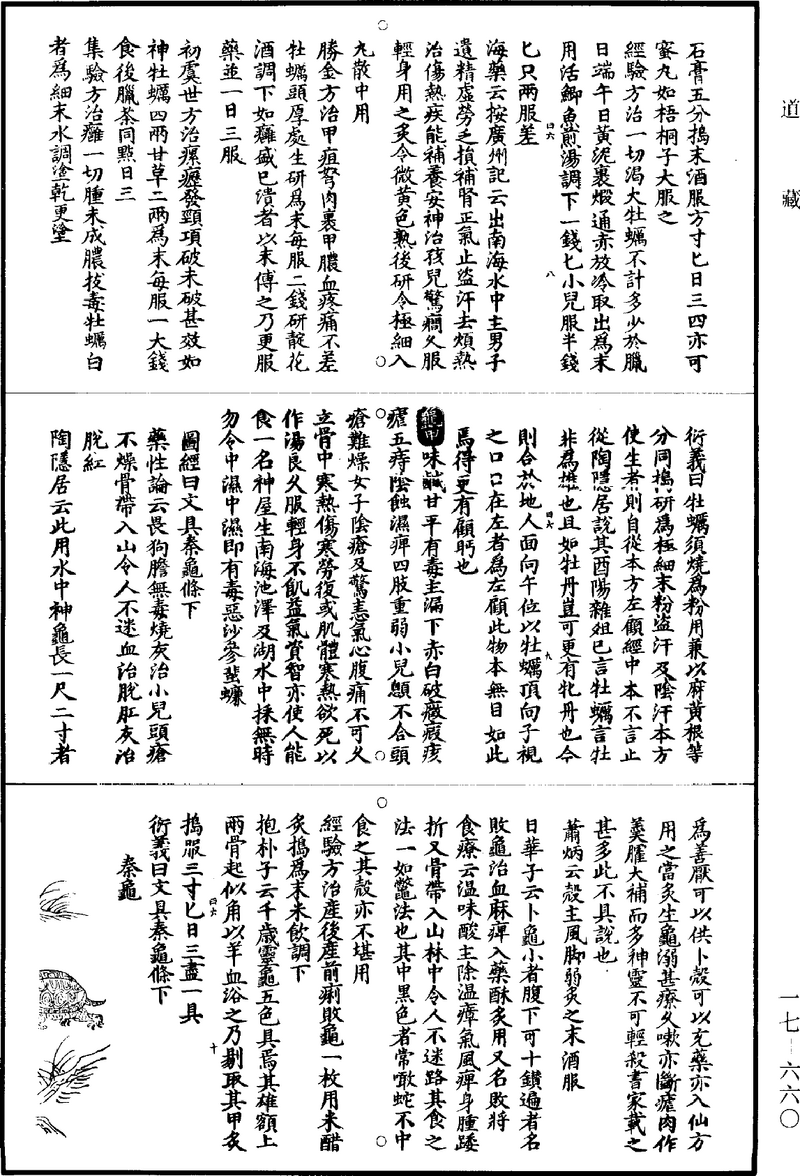 道藏
石膏五分搗末酒服方寸匕日三四亦可
蜜丸如梧桐子大服之
經驗方治一切渴大牡蠣不計多少於臘
日端午日黃泥裹煅通赤放冷取出為末
用活鯽魚煎湯調下一錢匕小兒服半錢
匕只兩服差
海藥云按廣州記云出南海水中主男子
遺精虛勞乏損補腎正氣止盜汗去煩熱
治傷熱疾能補養安神治孩兒驚癇久服
輕身用之炙令微黃色熟後研令極細入
丸散中用
勝金方治甲疽弩肉裹甲膿血疼痛不差
牡蠣頭厚處生研為末每服二錢研靛花
酒調下如癰盛已潰者以末傅之乃更服
藥並一日三服
初虞世方治瘰癧發頸項破未破甚效如
神牡蠣四兩甘草二兩為末每服一大錢
食後臘茶同點日三
集驗方治癰一切腫未成膿拔毒牡蠣白
者為細末水調塗乾更塗
衍義曰牡蠣須燒為粉用兼以麻黃根等
分同搗研為極細末粉盜汗及陰汗本方
使生者則自從本方左顧經中本不言止
從陶隱居說其酉陽雜俎已言牡蠣言牡
非為雄也且如牡丹豈可更有牝丹也今
則合於地人面向午位以牡蠣頂向子視
之口口在左者為左顧此物本無目如此
焉得更有顧眄也
龜甲味鹹甘平有毒主漏下赤白破癥瘕痎
瘧五痔陰蝕濕痺四肢重弱小兒顖不合頭
瘡難燥女子陰瘡及驚恚氣心腹痛不可久
立骨中寒熱傷寒勞復或肌體寒熱欲死以
作湯良久服輕身不飢益氣資智亦使人能
食一名神屋生南海池澤及湖水中採無時
勿令中濕中濕即有毒惡沙參蜚蠊
圖經曰文具秦龜條下
藥性論云畏狗膽無毒燒灰治小兒頭瘡
不燥骨帶入山令人不迷血治脫肛灰治
脫肛
陶隱居云此用水中神龜長一尺二寸者
為善厭可以供卜殼可以充藥亦入仙方
用之當炙生龜溺甚療久嗽亦斷瘧肉作
羹臛大補而多神靈不可輕殺書家載之
甚多此不具說也
蕭炳云殼主風腳弱炙之末酒服
日華子云卜龜小者腹下可十鑽遍者名
敗龜治血麻痺入藥酥炙用又名敗將
食療云溫味酸主除溫瘴氣風痺身腫踒
折又骨帶入山林中令人不迷路其食之
法一如鱉法也其中黑色者常噉蛇不中
食之其殼亦不堪用
經驗方治產後產前痢敗龜一枚用米醋
炙搗為末米飲調下
抱朴子云千歲靈龜五色具焉其雄額上
兩骨起似角以羊血浴之乃剔取其甲炙
搗服三寸匕日三盡一具
衍義曰文具秦龜條下
秦龜
四六
八
四六
九
四六
十
一七－六六〇